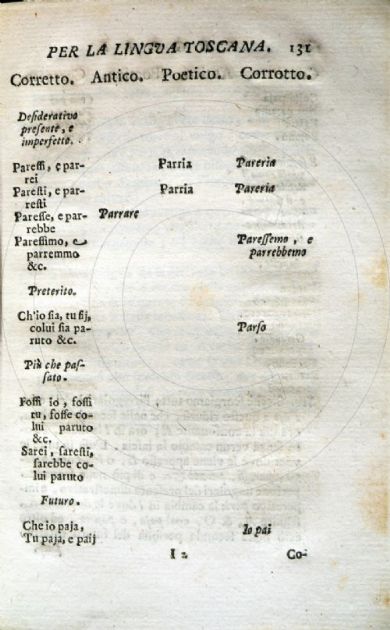 PER LA LINGVA TOSCANA. 131
Corretto. Antico. Poetico. Corrotto.
Desiderativo
presente, e
imperfetto.
Paressi, e par-
rei Parria Pareria
Paresti, e par-
resti Parria Pareria
Paresse, e par-
rebbe Parrare
Paressimo, e
parremmo
&c. Paressemo, e
parrebbemo
Preterito.
Ch'io sia, tu sij,
colui sia pa-
ruto &c. Parso
Più che pas-
sato.
Fossi io, fossi
tu, fosse co-
lui paruto
&c.
Sarei, saresti,
sarebbe co-
lui paruto
Futuro.
Che io paja, Io pai
Tu paja, e paij
I 2 Co-